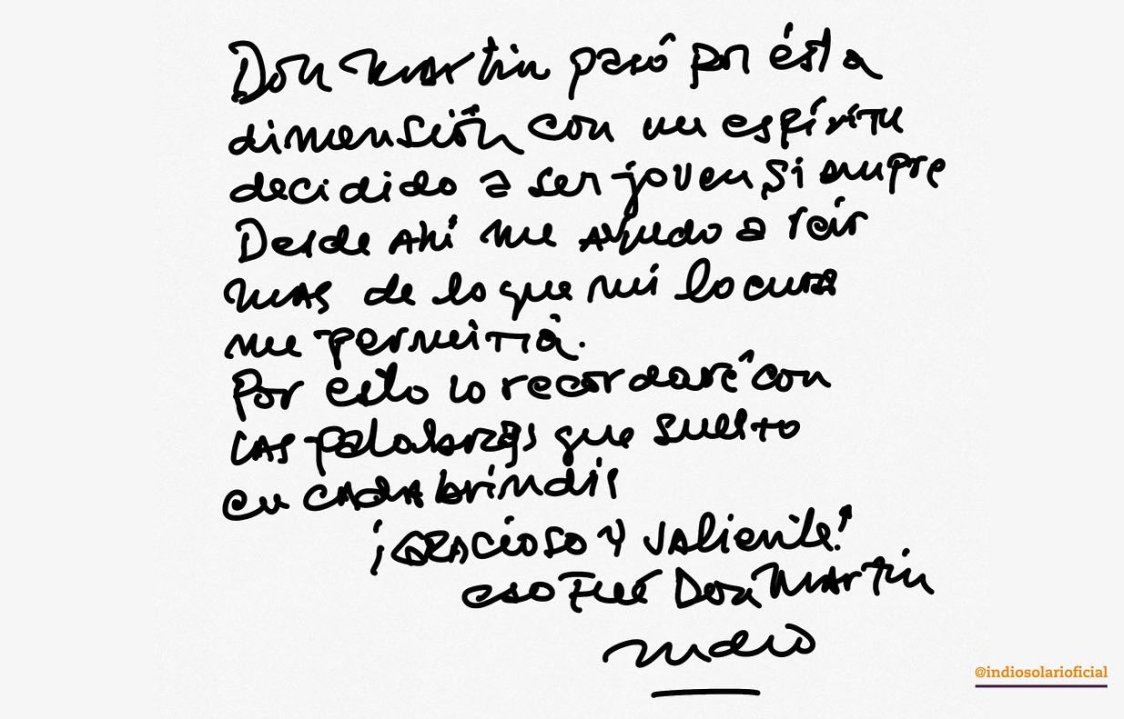 Don Martin pasó por ésta
dimensión con un espíritu
decidido a ser joven siempre
Desde ahí me ayudo a reir
mas de lo que mi locura
me permitía.
Por esto lo recordaré con
las palabras que suelto
en cada brindis
¡GRACIOSO Y VALiente!
eso Fué Don Martin
Indio
@indiosolarioficial